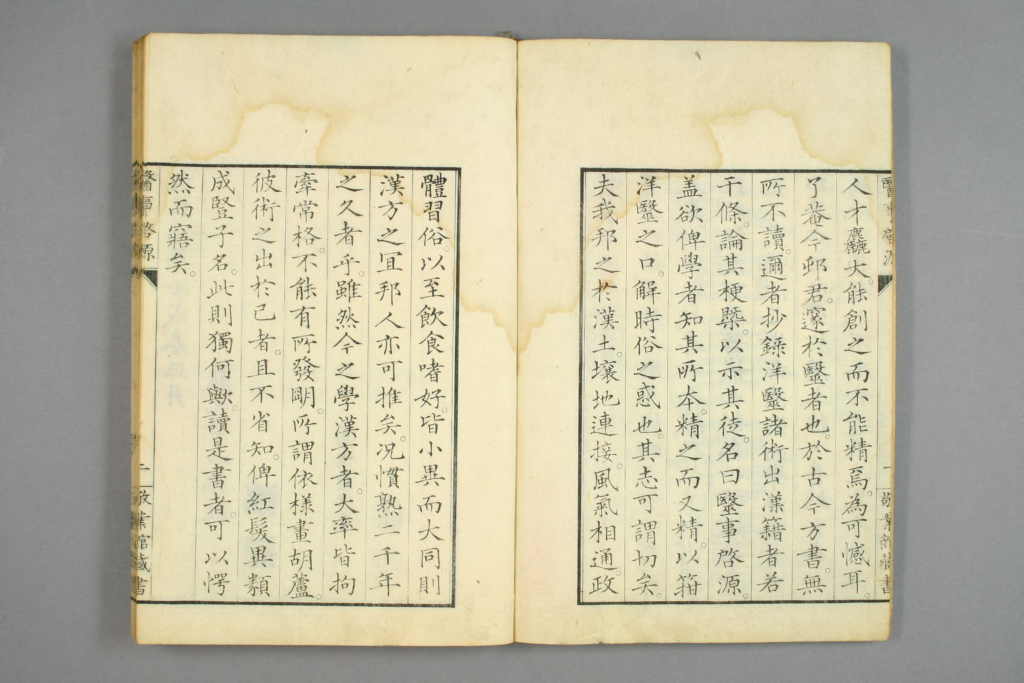 人才麤大。能創之而不能精焉。為可憾耳。
了菴今邨君。邃於毉者也。於古今方書。無
所不讀。邇者抄錄洋毉諸術出漢籍者若
干條。論其梗槩。以示其徒。名曰毉事啓源。
盖欲俾學者知其所本。精之而又精。以箝
洋毉之口。解時俗之惑也。其志可謂切矣。
夫我邦之於漢土。壤地連接。風氣相通。政
體習俗。以至飲食嗜好。皆小異而大同。則
漢方之宜邦人亦可推矣。况慣熟二千年
之久者乎。雖然今之學漢方者。大率皆拘
牽常格。不能有所發明。所謂依樣畫胡蘆。
彼術之出於己者。且不省知。俾紅髮異類
成豎子名。此則獨何歟。讀是書者。可以愕
然而寤矣。
醫事啓源
二
敬業館藏書